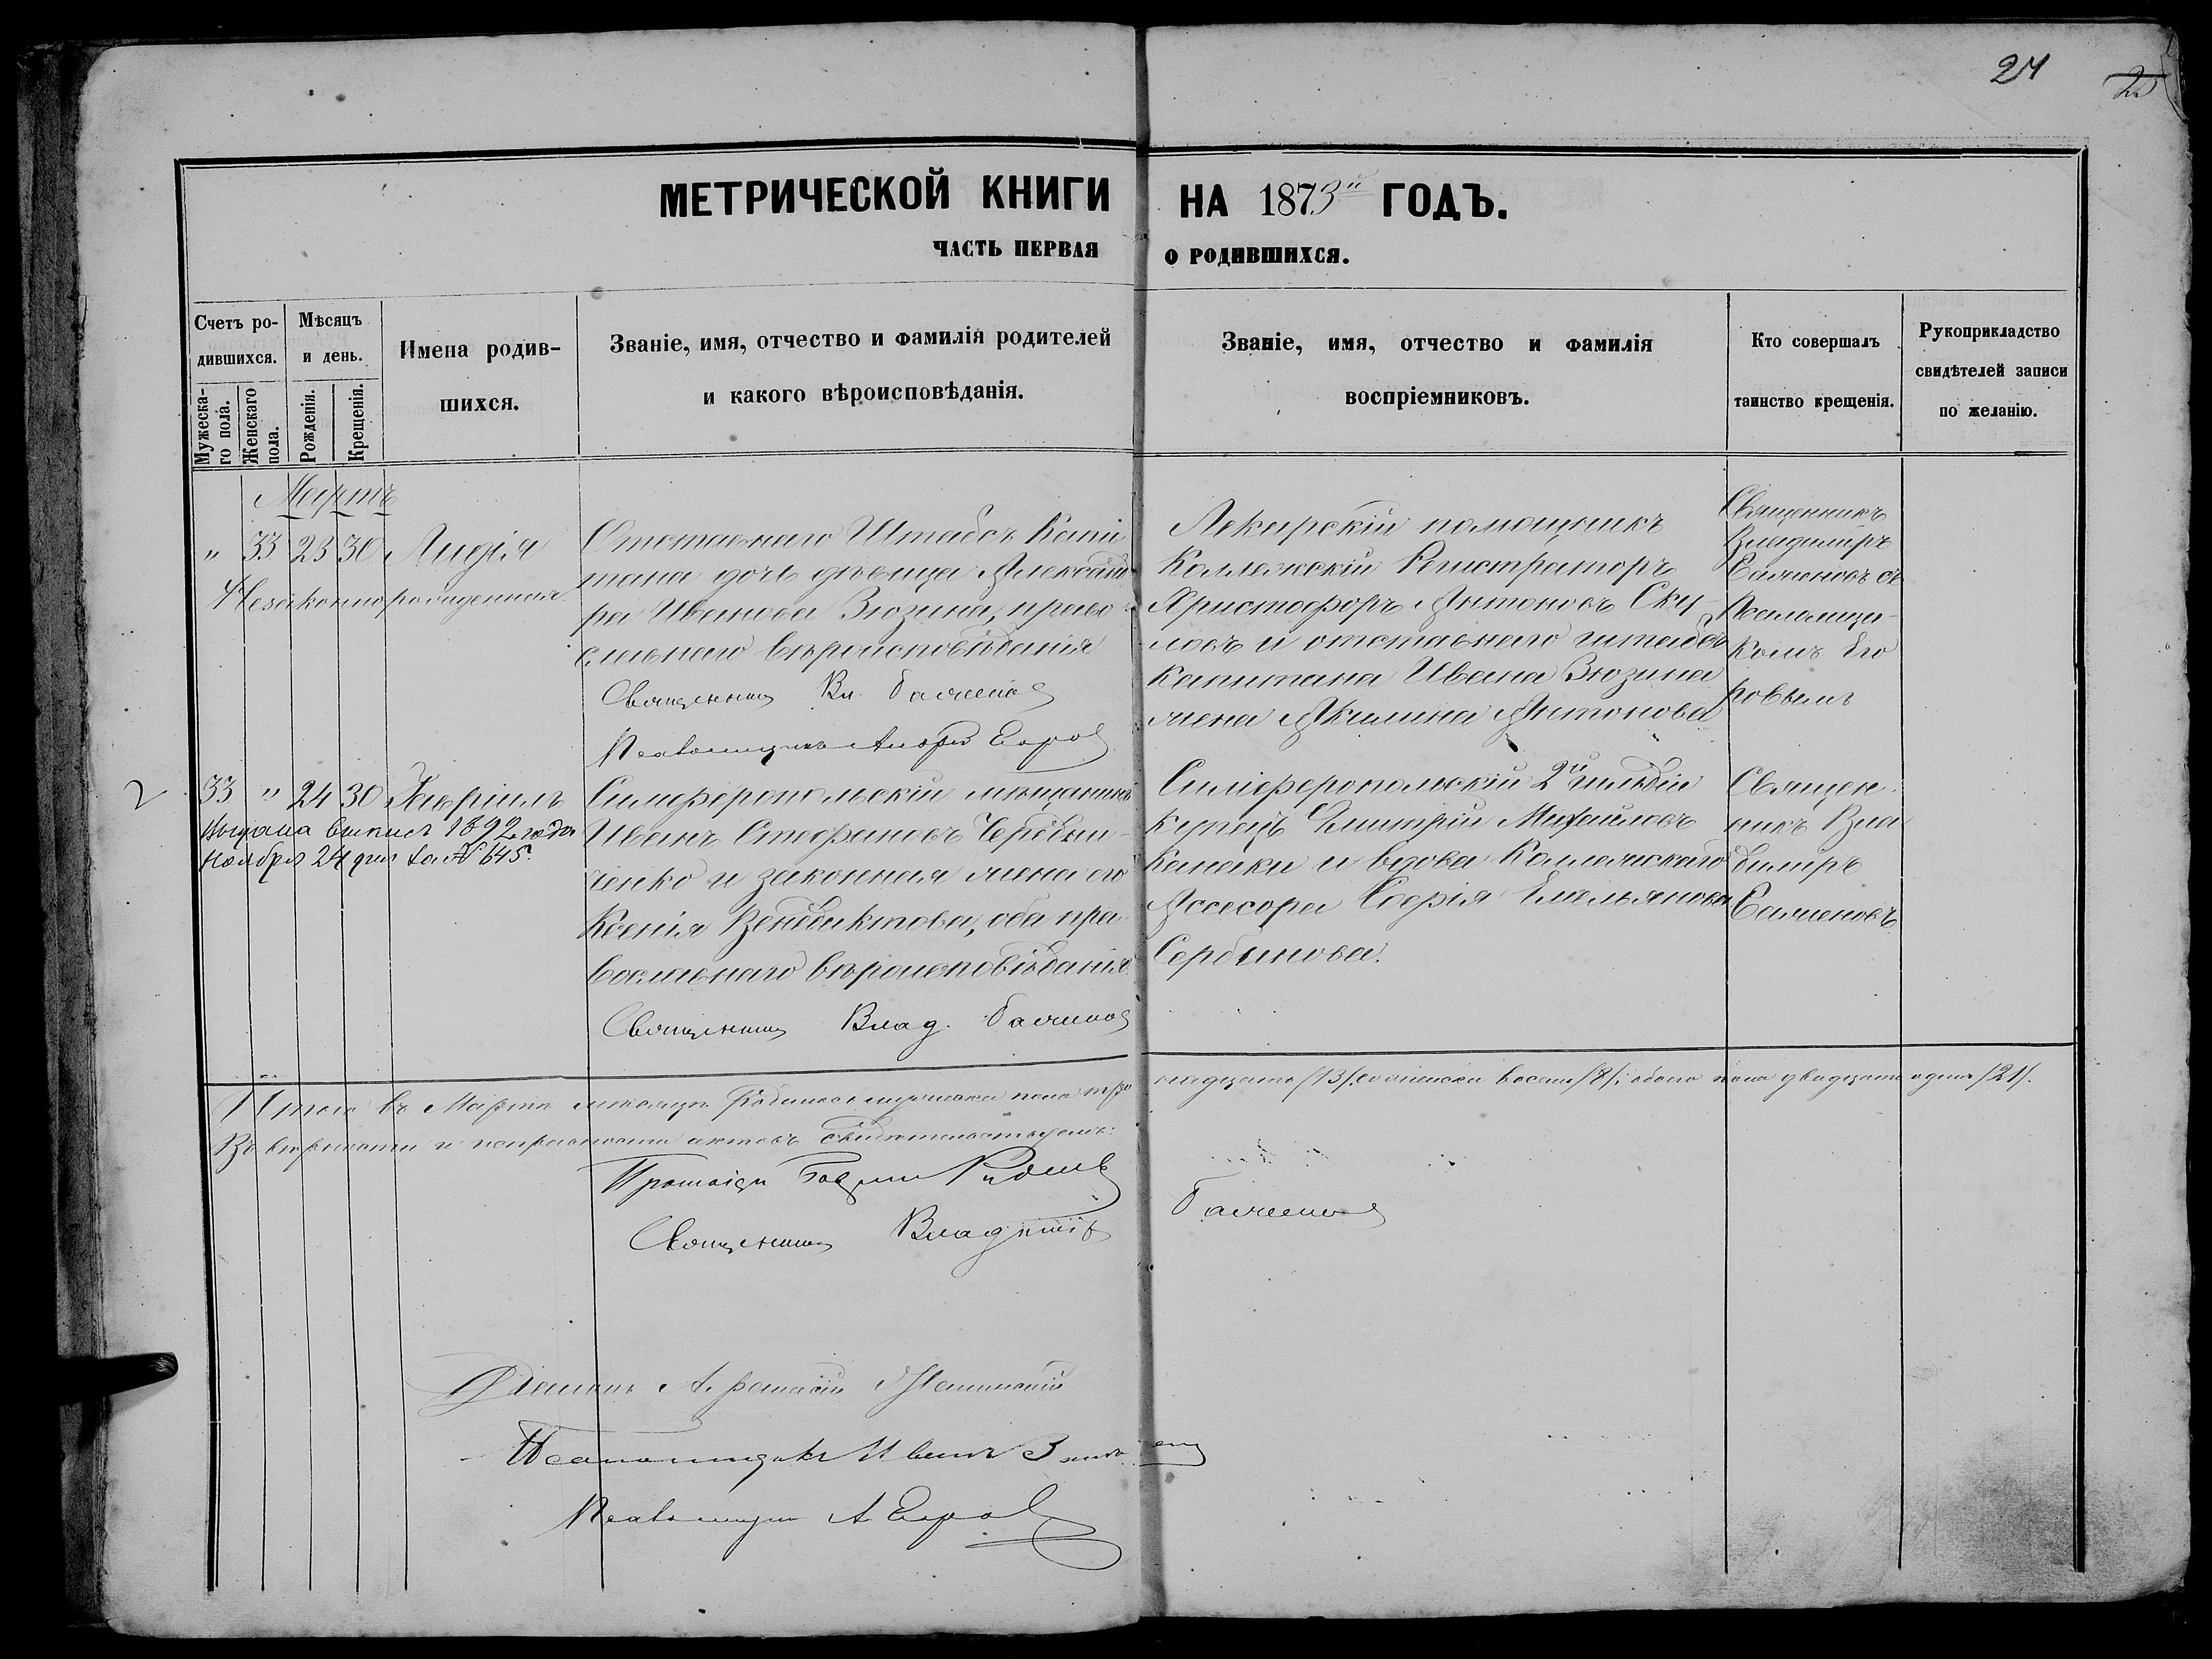 24
МЕТРИЧЕСКОЙ КНИГИ НА 1873й ГОДЪ.
ЧАСТЬ ПЕРВАЯ О РОДИВШИХСЯ.
Счетъ ро-
дившихся.
Мужеска-
го пола.
Женскаго
пола.
Мѣсяцъ
и день.
Рожденія.
Крещенія.
Имена родив-
шихся.
Званіе, имя, отчество и фамилія родителей
и какого вѣроисповѣданія.
Званіе, имя, отчество и фамилія
воспріемниковъ.
Кто совершалъ
таинство крещенія.
Рукоприкладство
свидѣтелей записи
по желанію.
Мартъ
" 33 23 30 Лидія
Незаконнорожденная
Отставнаго Штабсъ Капи
тана дочь дѣвица Александ
ра Иванова Зюзина, право
славнаго вѣроисповѣданія
Священникъ Вл. Баженов
Псаломщикъ Андрей Егоров
Лекарскій помощникъ
Коллежскій Регистраторъ
Христофоръ Антоновъ Ску-
ловъ и отставнаго штабсъ
Капитана Ивана Зюзина
жена Акилина Антонова
Священникъ
Владиміръ
Баженовъ съ
Псаломщи-
комъ Его
ровымъ
2
33 " 24 30 Гавріилъ
Выдана выпись 1892 года
Ноября 24 дня за № 645.
Симферопольскій мѣщанинъ
Иванъ Стефановъ Червин-
ченко и законная жена его
Ксенія Венедиктова, оба пра
вославнаго вѣроисповѣданія
Священникъ Влад. Баженов
Симферопольскій 2й гильдіи
Купецъ Димитрій Михайловъ
Канаки и вдова Коллежскаго
Ассесора Софія Емельянова
Сербинова.
Священ
никъ Вла
диміръ
Баженовъ
Итого въ Мартѣ мѣсяцѣ родилось мужеска пола три надцать /13/, женска восемь /8/; обоего пола двадцать одинъ /21/.
Въ вѣрности и исправности актовъ свидѣтельствуемъ:
Священникъ Владиміръ Баженов
Псаломщикъ Иванъ
Псаломщикъ А Егоров